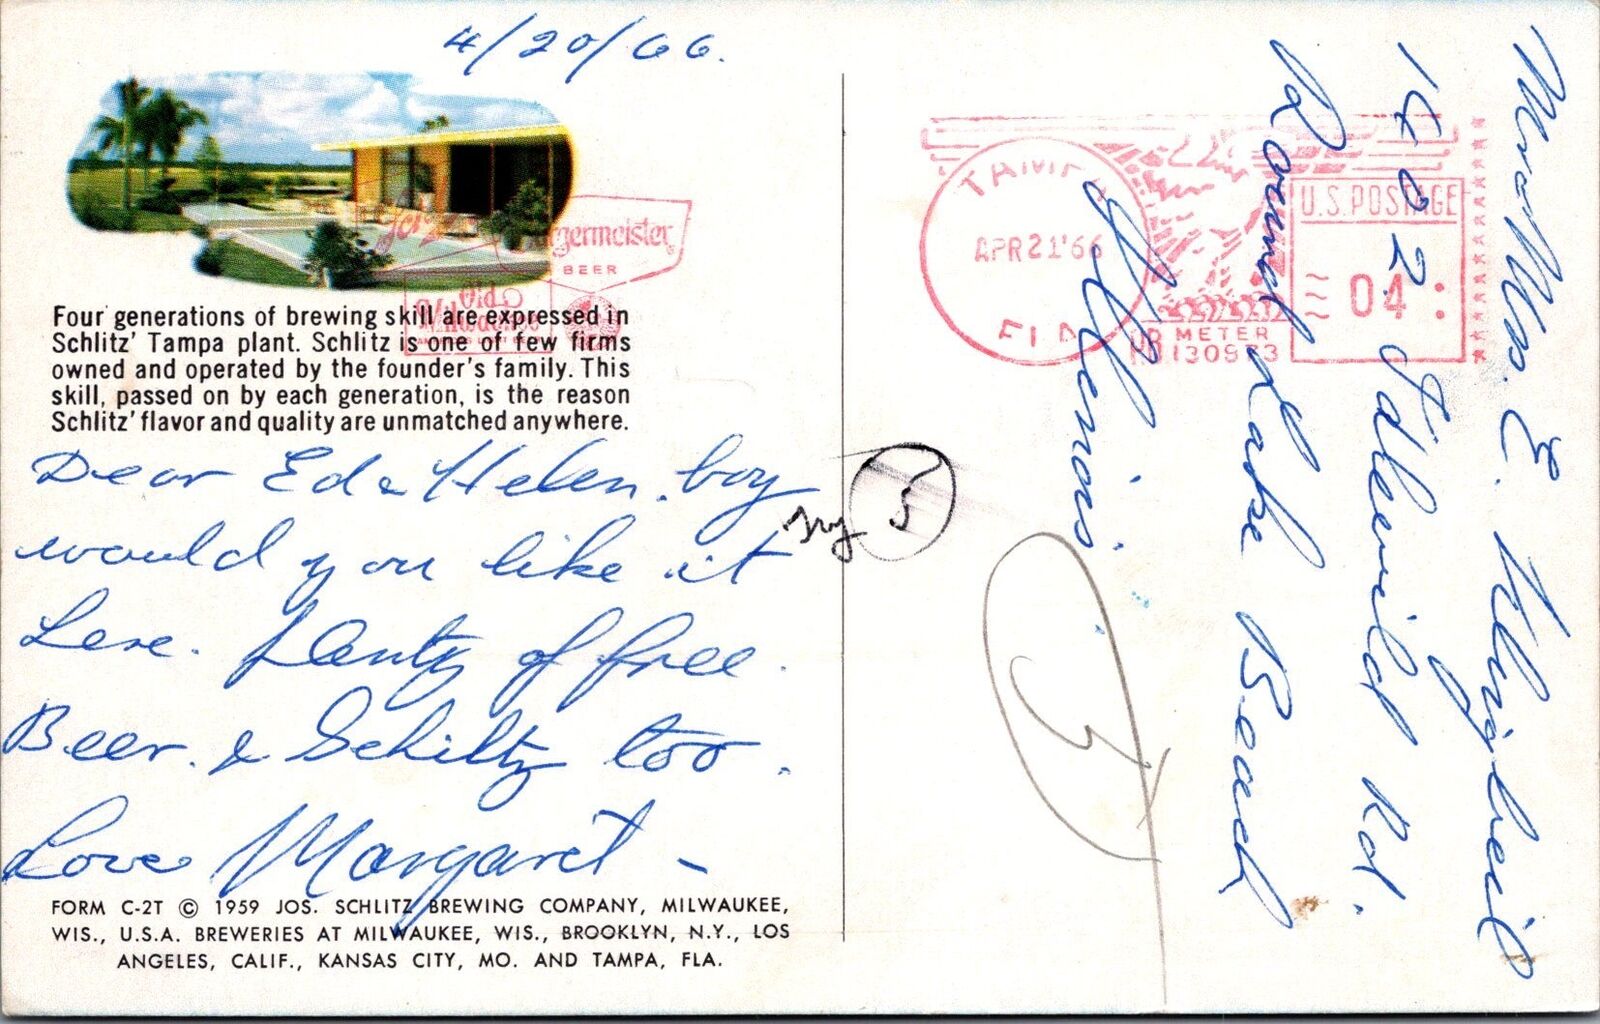 4/20/66.
Schlitz
Burgermeister
BEER
Old
Milwaukee
Four generations of brewing skill are expressed in
Schlitz' Tampa plant. Schlitz is one of few firms
owned and operated by the founder's family. This
skill, passed on by each generation, is the reason
Schlitz' flavor and quality are unmatched anywhere.
Dear Ed & Helen. boy
would you like it
here. Plenty of free.
Beer. & Schiltz too.
Love Margaret -
FORM C-2T © 1959 JOS. SCHLITZ BREWING COMPANY, MILWAUKEE,
WIS., U.S.A. BREWERIES AT MILWAUKEE, WIS., BROOKLYN, N.Y., LOS
ANGELES, CALIF., KANSAS CITY, MO. AND TAMPA, FLA.
TAMPA
APR 21 '66
FLA
U.S. POSTAGE
04
PB METER
130973
Mr & Mrs. E.
1402 Idlewild Rd.
Round Lake Beach
Illinois.
5